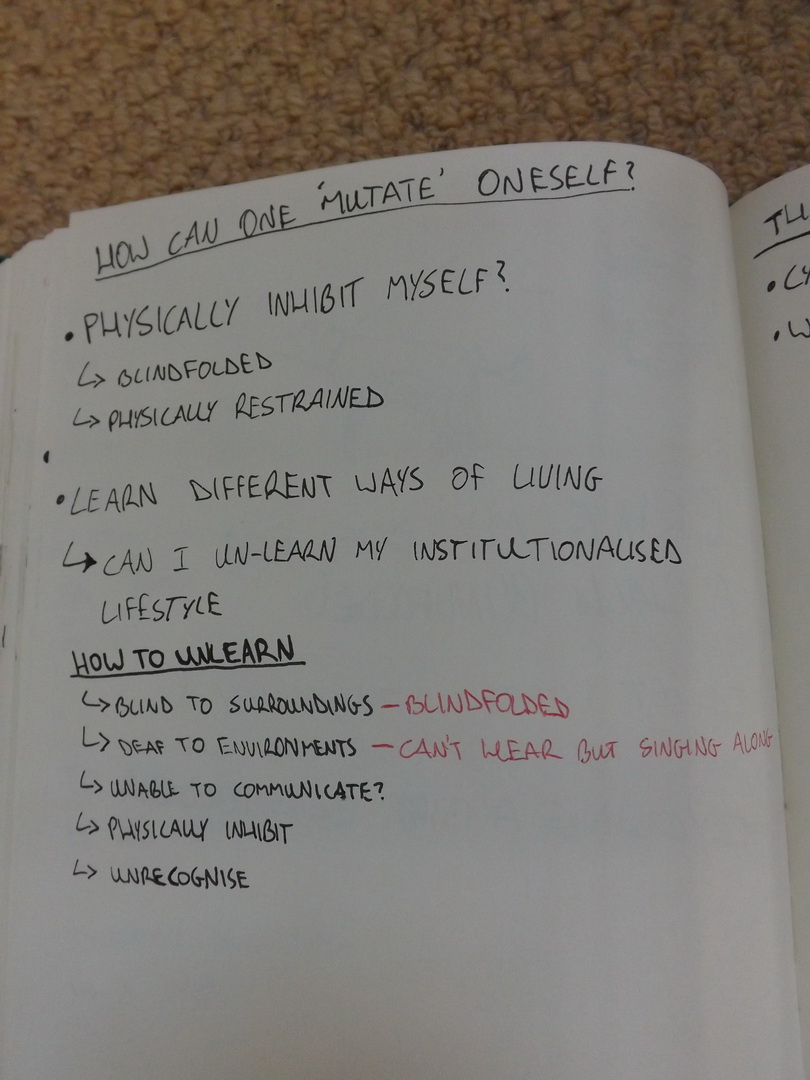 HOW CAN ONE 'MUTATE' ONESELF?
• PHYSICALLY INHIBIT MYSELF?
↳ BLINDFOLDED
↳ PHYSICALLY RESTRAINED
• LEARN DIFFERENT WAYS OF LIVING
↳ CAN I UN-LEARN MY INSTITUTIONALISED
LIFESTYLE
HOW TO UNLEARN
↳ BLIND TO SURROUNDINGS – BLINDFOLDED
↳ DEAF TO ENVIRONMENTS – CAN'T HEAR BUT SINGING ALONG
↳ UNABLE TO COMMUNICATE?
↳ PHYSICALLY INHIBIT
↳ UNRECOGNISE